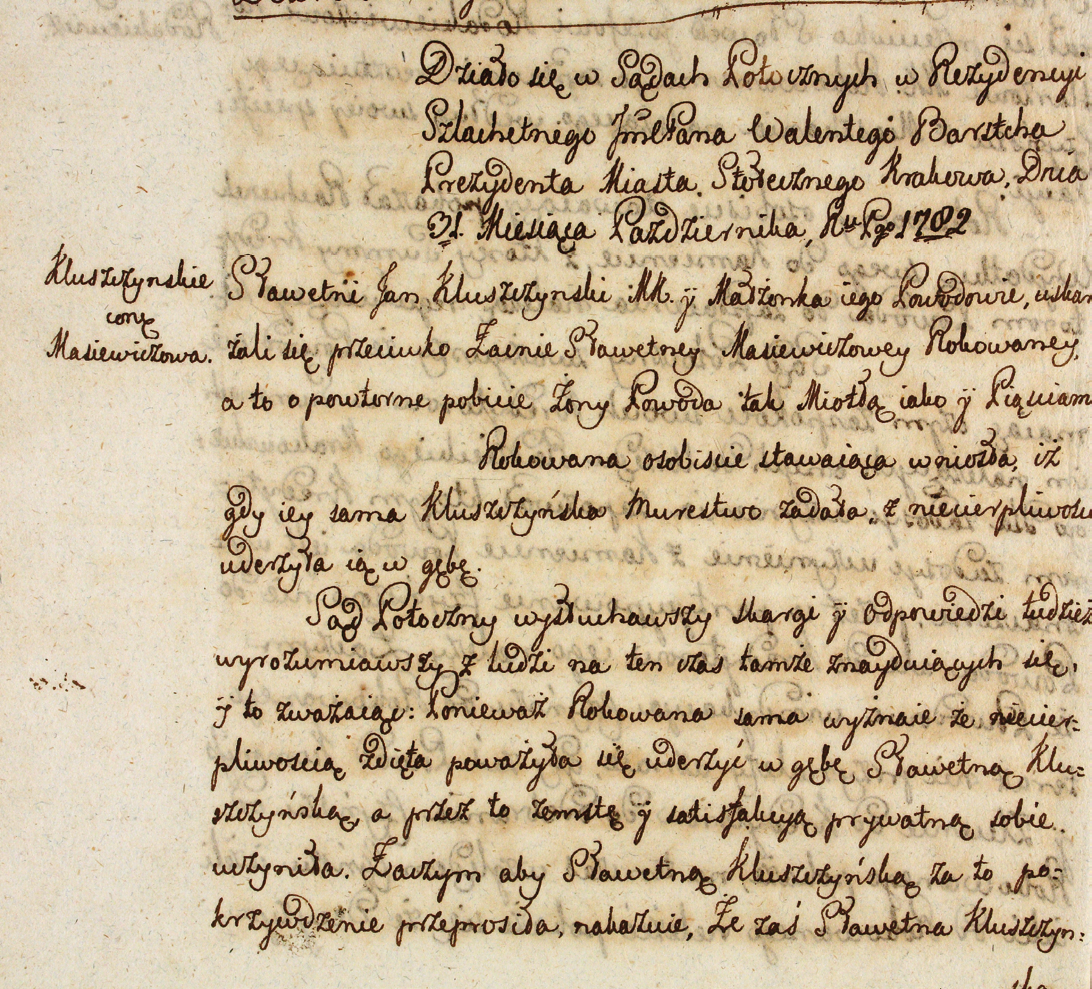 Działo się w Sądach Potocznych w Rezydencyi
Szlachetnego JmćPana Walentego Bartscha
Prezydenta Miasta Stołecznego Krakowa, Dnia
31. Miesiąca Października, Rku Pgo 1782
Kluszczynskie
conę
Masiewiczowa.
Sławetni Jan Kluszczynski MK. ÿ Małżonka iego Powodowie, uskar
żali się przeciwko Zacnie Sławetney Masiewiczowey Robowaney
a to o powtorne pobicie Żony Powoda tak Miotłą iako ÿ Pięściam
Robowana osobiscie stawaiąca wniosła, iż
gdy iey sama Kluszczyńska Murestwo zadała, z niecierpliwości
uderzyła ią w gębę.
Sąd Potoczny wysłuchawszy skargi ÿ odpowiedzi tudzież
wyrozumiawszy z ludzi na ten czas tamże znayduiących się,
ÿ to zważaiąc: Ponieważ Robowana sama wyznaie że niecier=
pliwością zdięta poważyła się uderzyć w gębę Sławetną Klu=
szczyńską, a przez to zemstę ÿ satisfakcyą prywatną sobie
uczyniła. Zaczym aby Sławetną Kluszczyńską za to po=
krzywdzenie przeprosiła, nakazuie, Że zaś Sławetna Kluszczyn=
ska